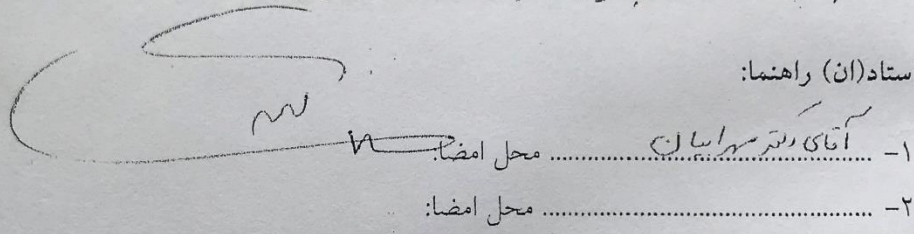 ستاد(ان) راهنما:
۱- آقای دکتر مهرابیان محل امضا:
۲- ........................................ محل امضا: